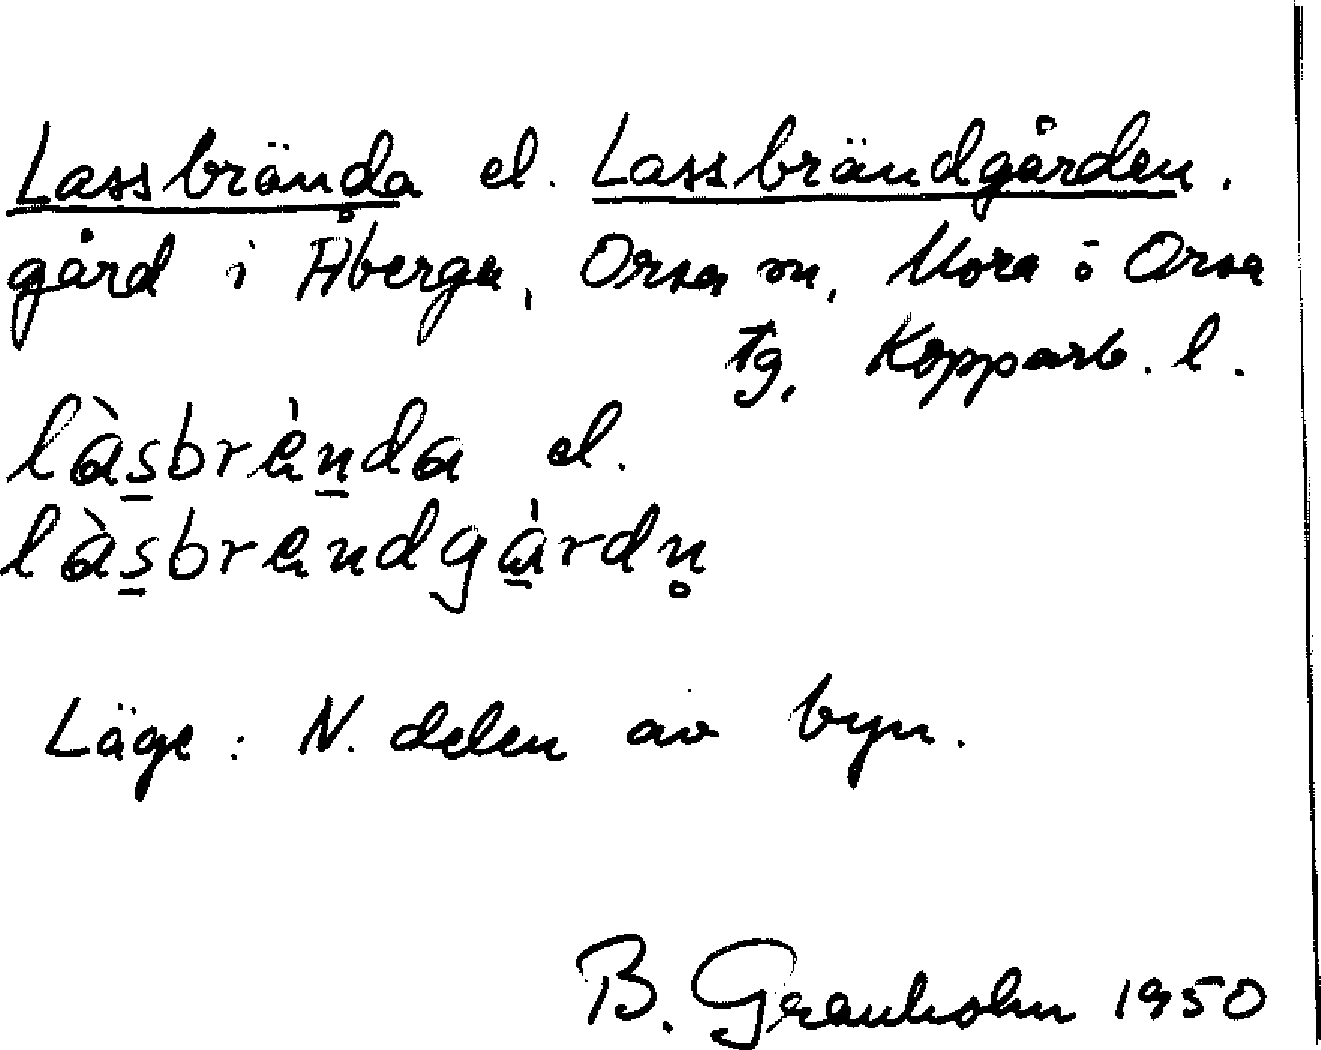 Lassbrända el. Lassbrändgården.
gård i Åberga, Orsa sn, Mora o Orsa
tg, Kopparb. l.
làsbrènda el.
làsbrendgàrdn̥
Läge: N. delen av byn.
B. Granholm 1950